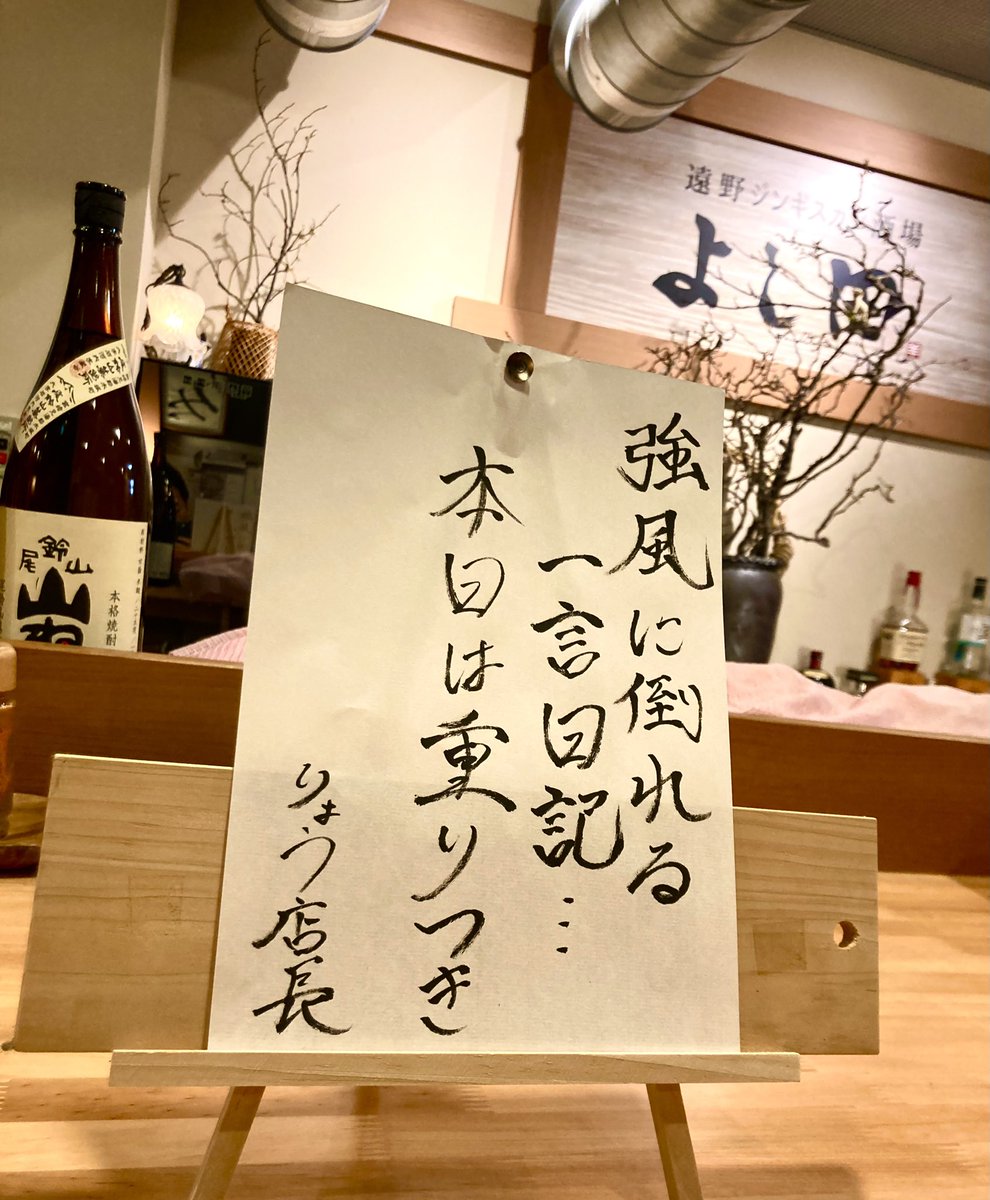 強風に倒れる
一言日記…
本日は重りつき
りょう店長
遠野ジンギスカン酒場
よし田
鈴山
尾
本格焼酎